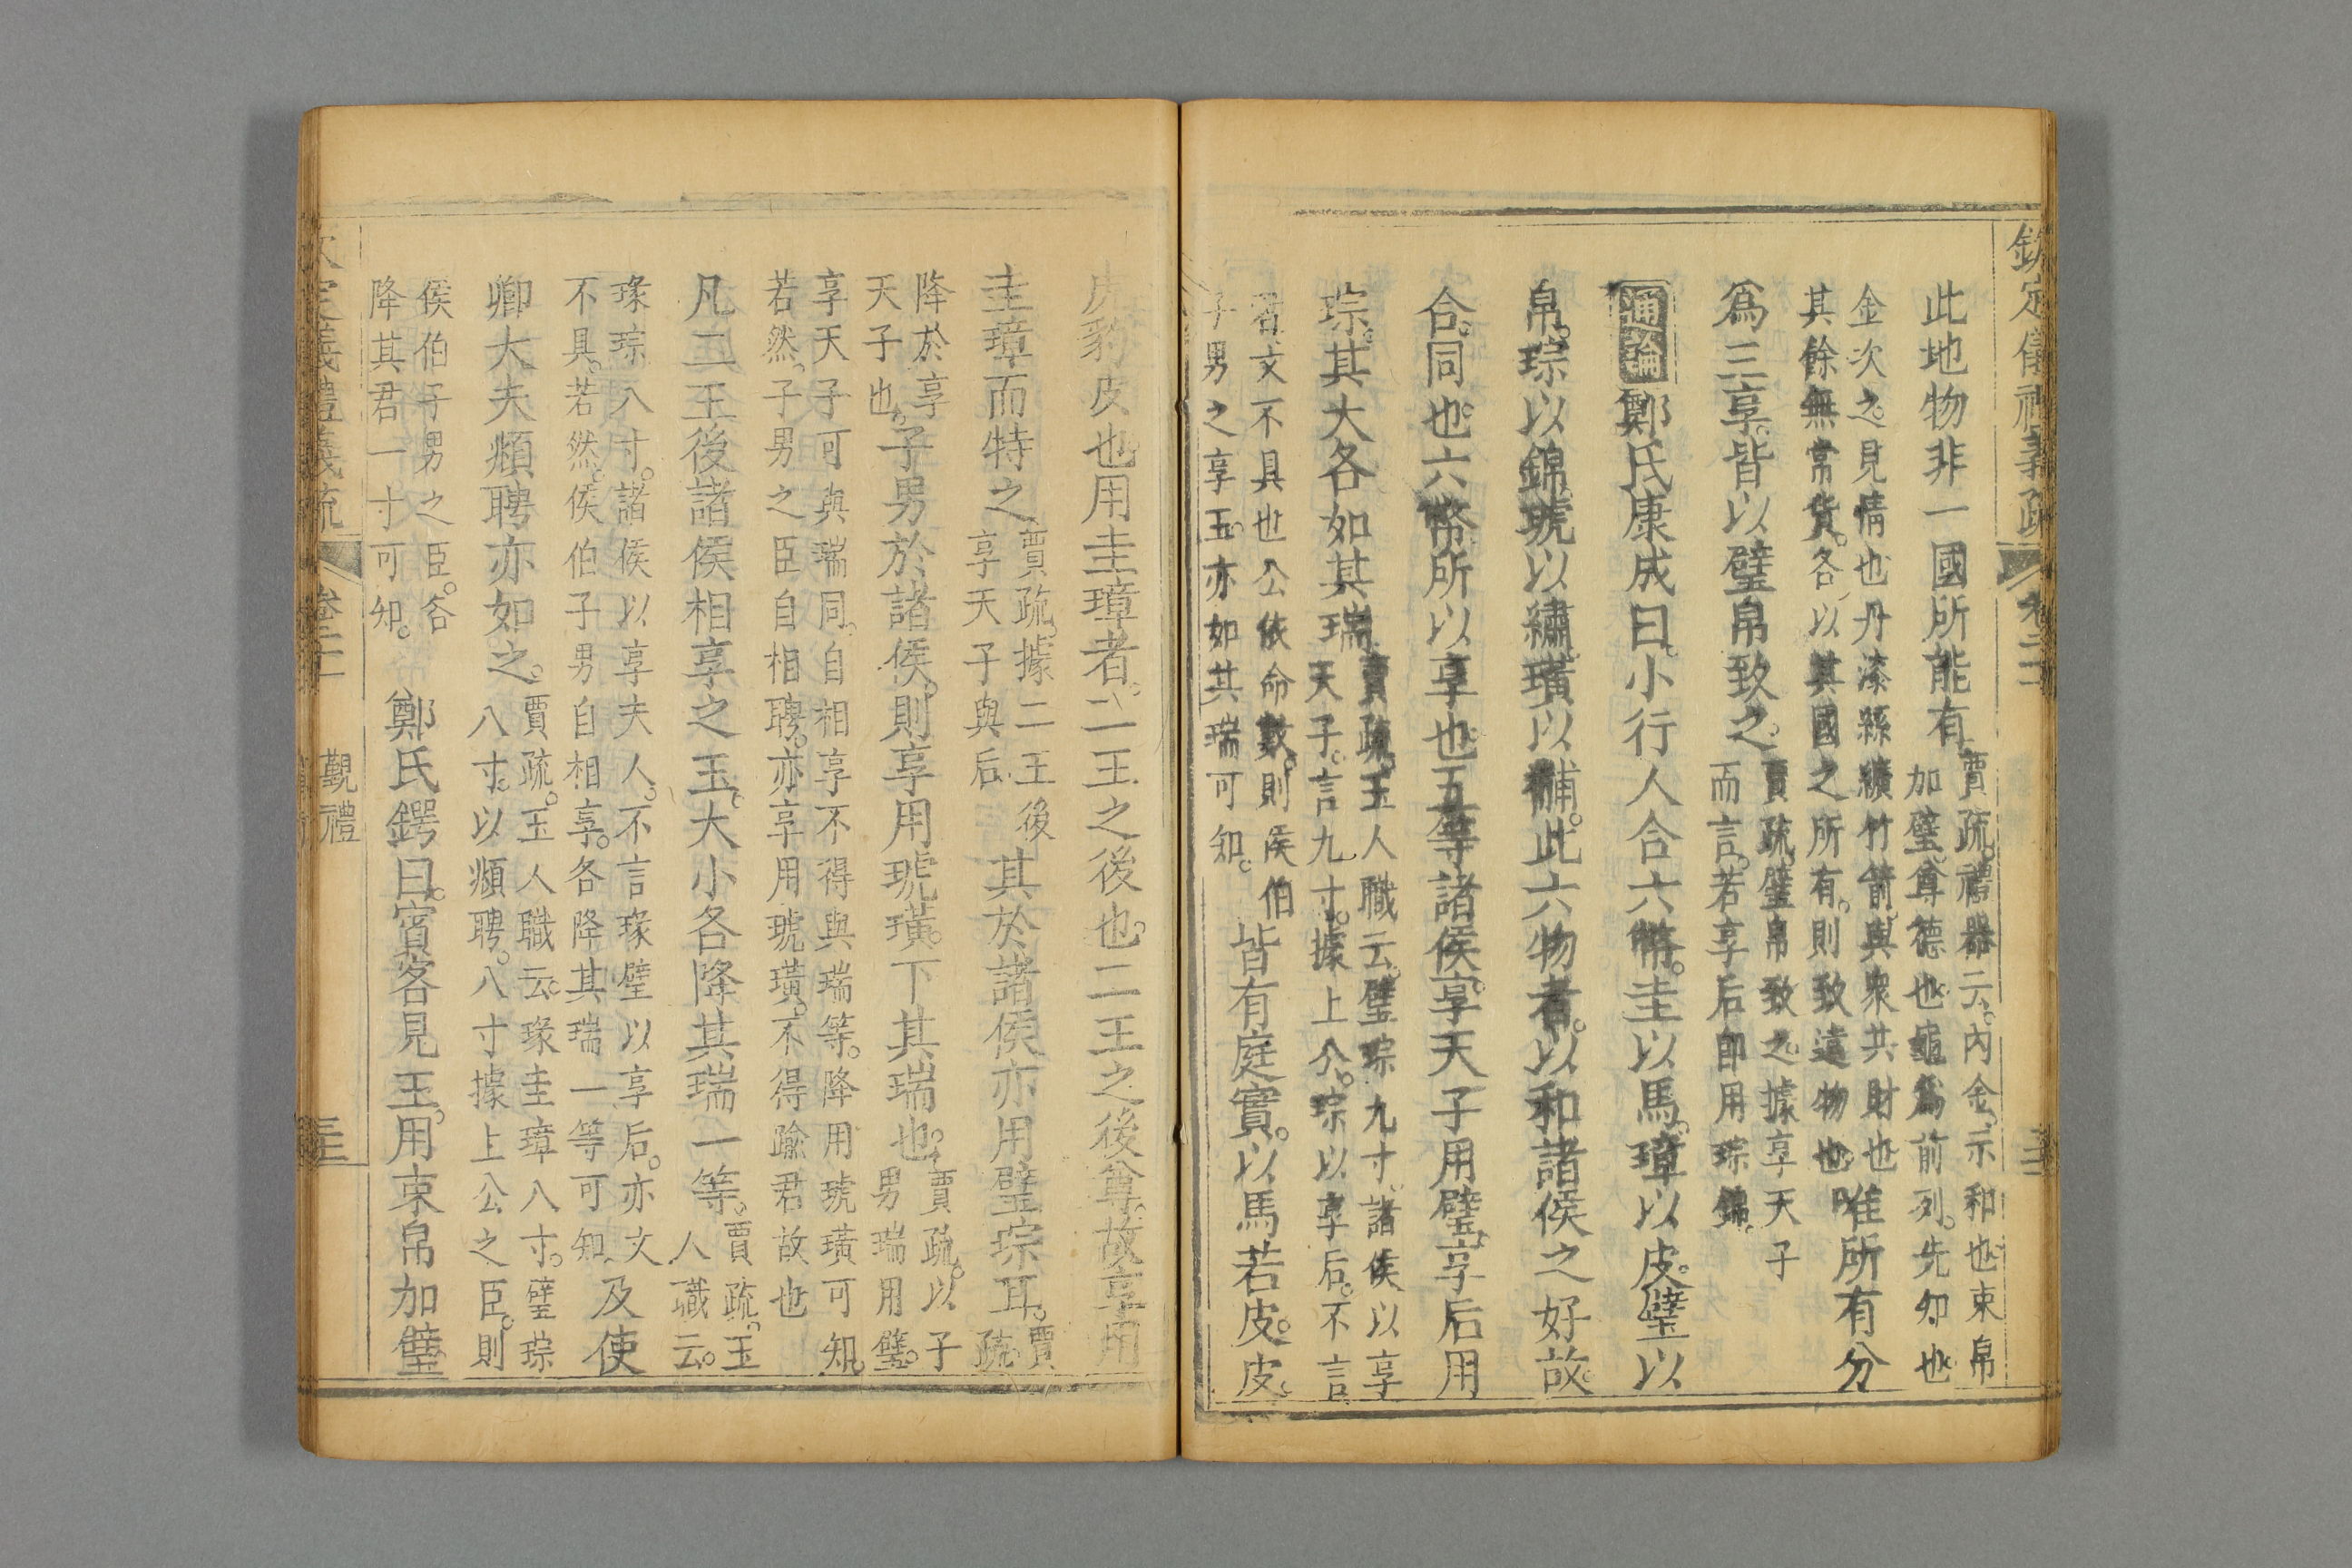 此地物非一國所能有
賈疏禮器云內金示和也束帛
加璧尊德也龜爲前列先知也
金次之見情也丹漆絲纊竹箭與衆共財也
其餘無常貨各以其國之所有則致遠物也
唯所有分
爲三享皆以璧帛致之
賈疏璧帛致之據享天子
而言若享后卽用琮錦
通論
鄭氏康成曰小行人合六幣圭以馬璋以皮璧以
帛琮以錦琥以繡璜以黼此六物者以和諸侯之好故
合同也六幣所以享也五等諸侯享天子用璧享后用
琮其大各如其瑞
賈疏玉人職云璧琮九寸諸侯以享
天子言九寸據上公琮以享后不言
者文不具也公依命數則侯伯
子男之享玉亦如其瑞可知
皆有庭實以馬若皮皮
虎豹皮也用圭璋者二王之後也二王之後尊故享用
圭璋而特之
賈疏據二王後
享天子與后
其於諸侯亦用璧琮耳
賈
疏
降於享
天子也
子男於諸侯則享用琥璜下其瑞也
賈疏以子
男瑞用璧
享天子可與瑞同自相享不得與瑞等降用琥璜可知
若然子男之臣自相聘亦享用琥璜不得踰君故也
凡二王後諸侯相享之玉大小各降其瑞一等
賈疏玉
人職云
瑑琮八寸諸侯以享夫人不言瑑璧以享后亦文
不具若然侯伯子男自相享各降其瑞一等可知
及使
卿大夫頫聘亦如之
賈疏玉人職云瑑圭璋八寸璧琮
八寸以頫聘八寸據上公之臣則
侯伯子男之臣各
降其君一寸可知
鄭氏鍔曰賓客見玉用束帛加璧
覲禮